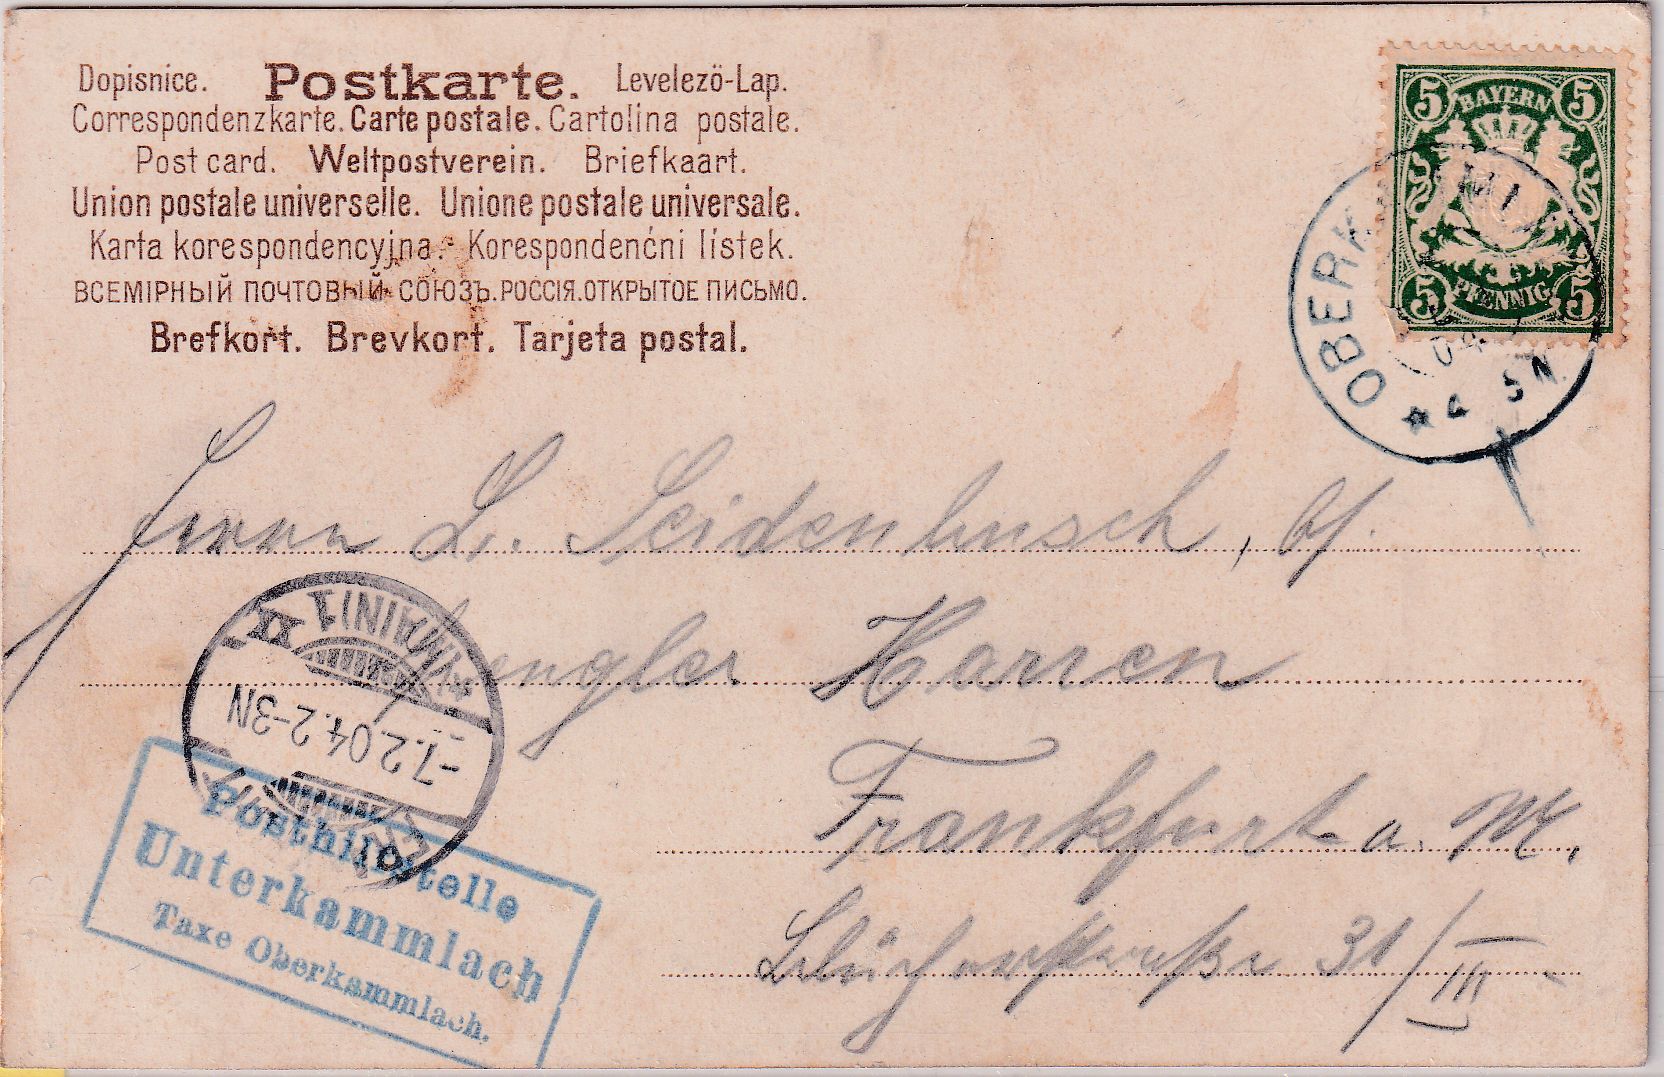 Dopisnice. Postkarte. Levelezö-Lap.
Correspondenzkarte. Carte postale. Cartolina postale.
Post card. Weltpostverein. Briefkaart.
Union postale universelle. Unione postale universale.
Karta korespondencyjna. Korespondenćni lístek.
ВСЕМІРНЫЙ ПОЧТОВЫЙ СОЮЗЪ. РОССІЯ. ОТКРЫТОЕ ПИСЬМО.
Brefkort. Brevkort. Tarjeta postal.
5 BAYERN 5
5 PFENNIG 5
OBERK
04
5 N.
Herrn L. Seidenbusch,
Harren
Frankfurt a. M.
31/III
(MAIN) 1
XX
-7.2.04. 2-3N
Posthilfstelle
Unterkammlach
Taxe Oberkammlach.